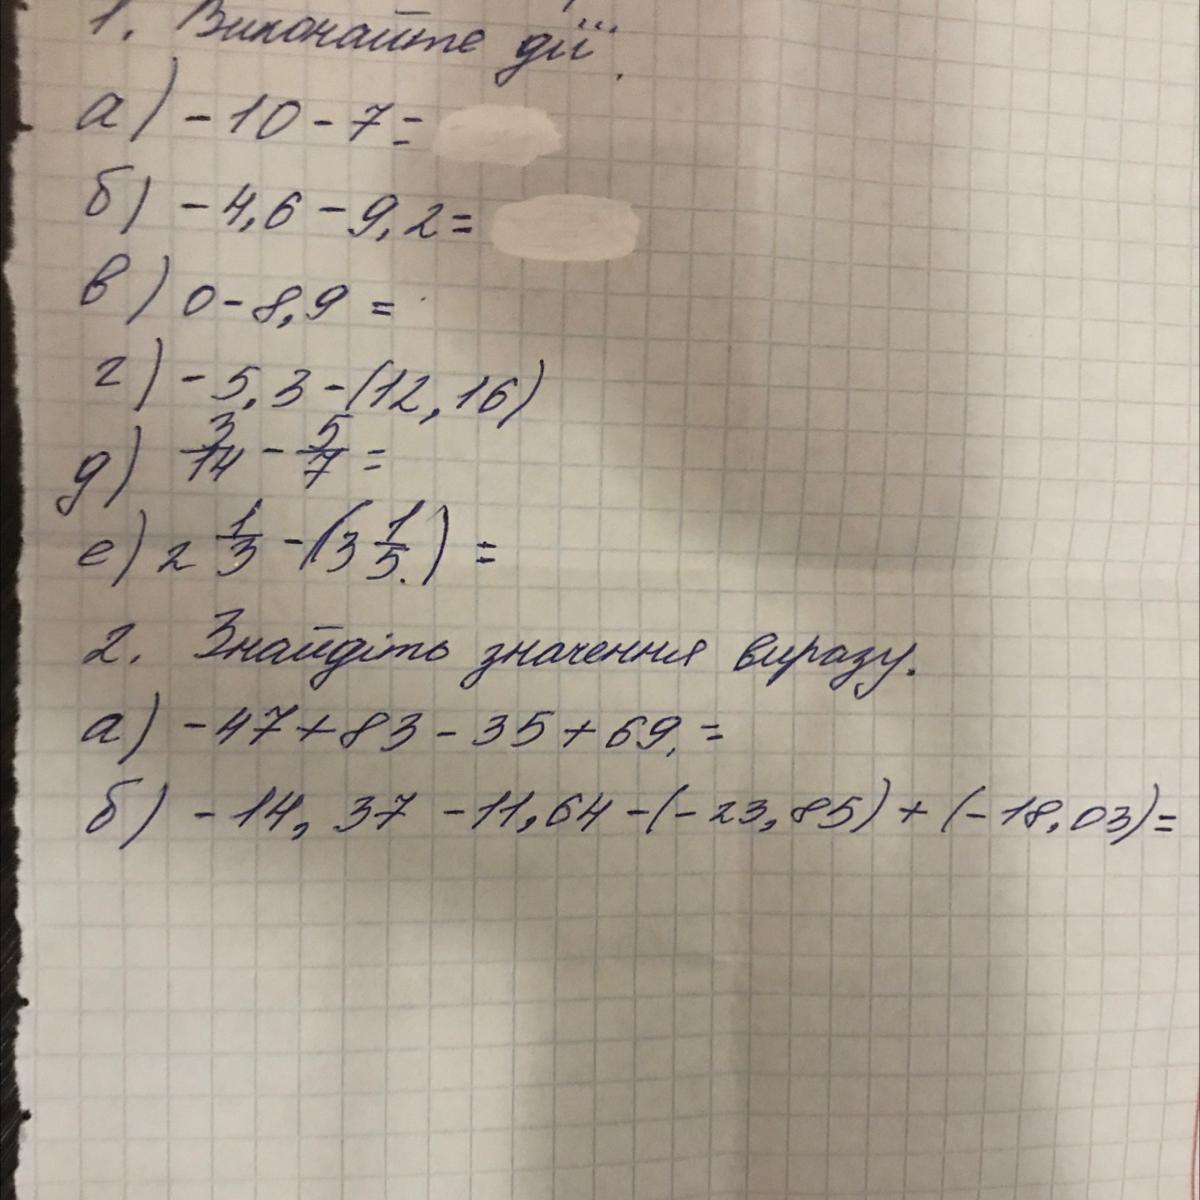 1. Виконайте дії.
а) -10-7=
б) -4,6-9,2=
в) 0-8,9=
г) -5,3-(12,16)
д) 3/14 - 5/7 =
е) 2 1/3 - (3 1/5) =
2. Знайдіть значення виразу.
а) -47+83-35+69,=
б) -14,37-11,64-(-23,85)+(-18,03)=